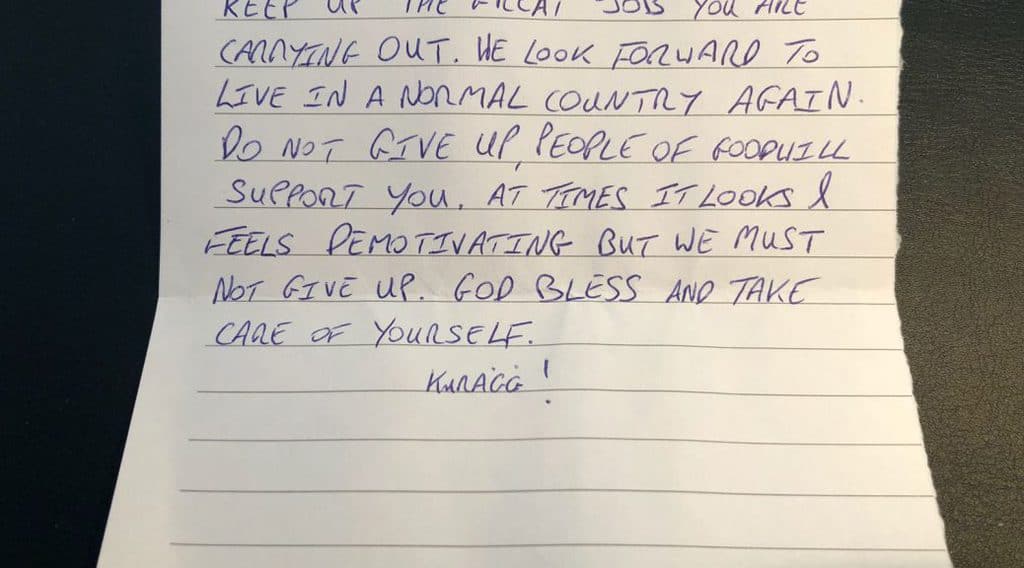 KEEP UP THE GREAT JOB YOU ARE
CARRYING OUT. WE LOOK FORWARD TO
LIVE IN A NORMAL COUNTRY AGAIN.
DO NOT GIVE UP, PEOPLE OF GOODWILL
SUPPORT YOU. AT TIMES IT LOOKS &
FEELS DEMOTIVATING BUT WE MUST
NOT GIVE UP. GOD BLESS AND TAKE
CARE OF YOURSELF.
KURAĠĠ!